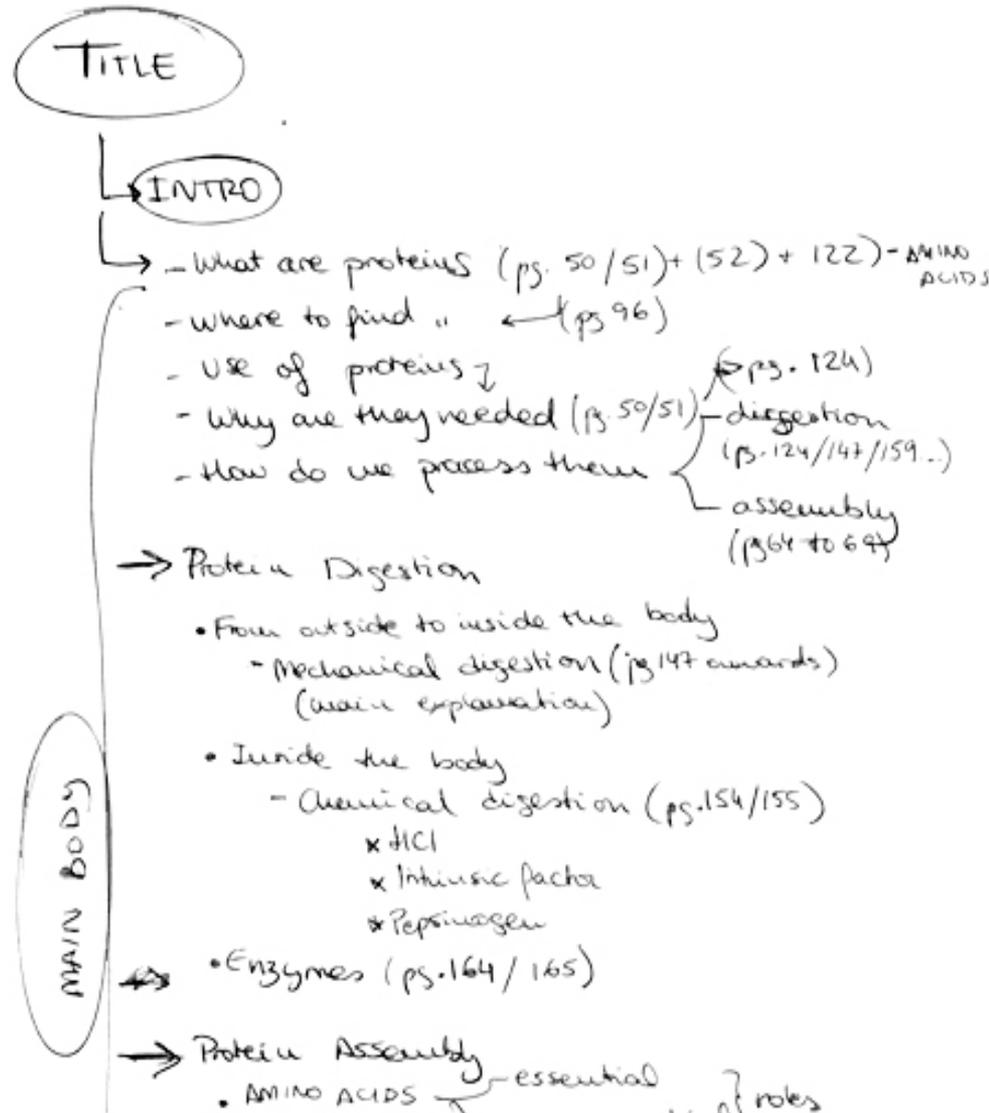 TITLE
INTRO
- What are proteins (pg. 50/51) + (52) + 122) - AMINO ACIDS
- where to find " ← (pg 96)
- Use of proteins
- Why are they needed (pg. 50/51)
→ pg. 124)
- How do we process them
- digestion
(pg. 124/147/159..)
- assembly
(pg 64 to 69)
→ Protein Digestion
• From outside to inside the body
- Mechanical digestion (pg 147 onwards)
(main explanation)
• Inside the body
- Chemical digestion (pg. 154/155)
* HCl
* Intrinsic factor
* Pepsinogen
MAIN BODY
• Enzymes (pg. 164/165)
→ Protein Assembly
• AMINO ACIDS - essential
} roles